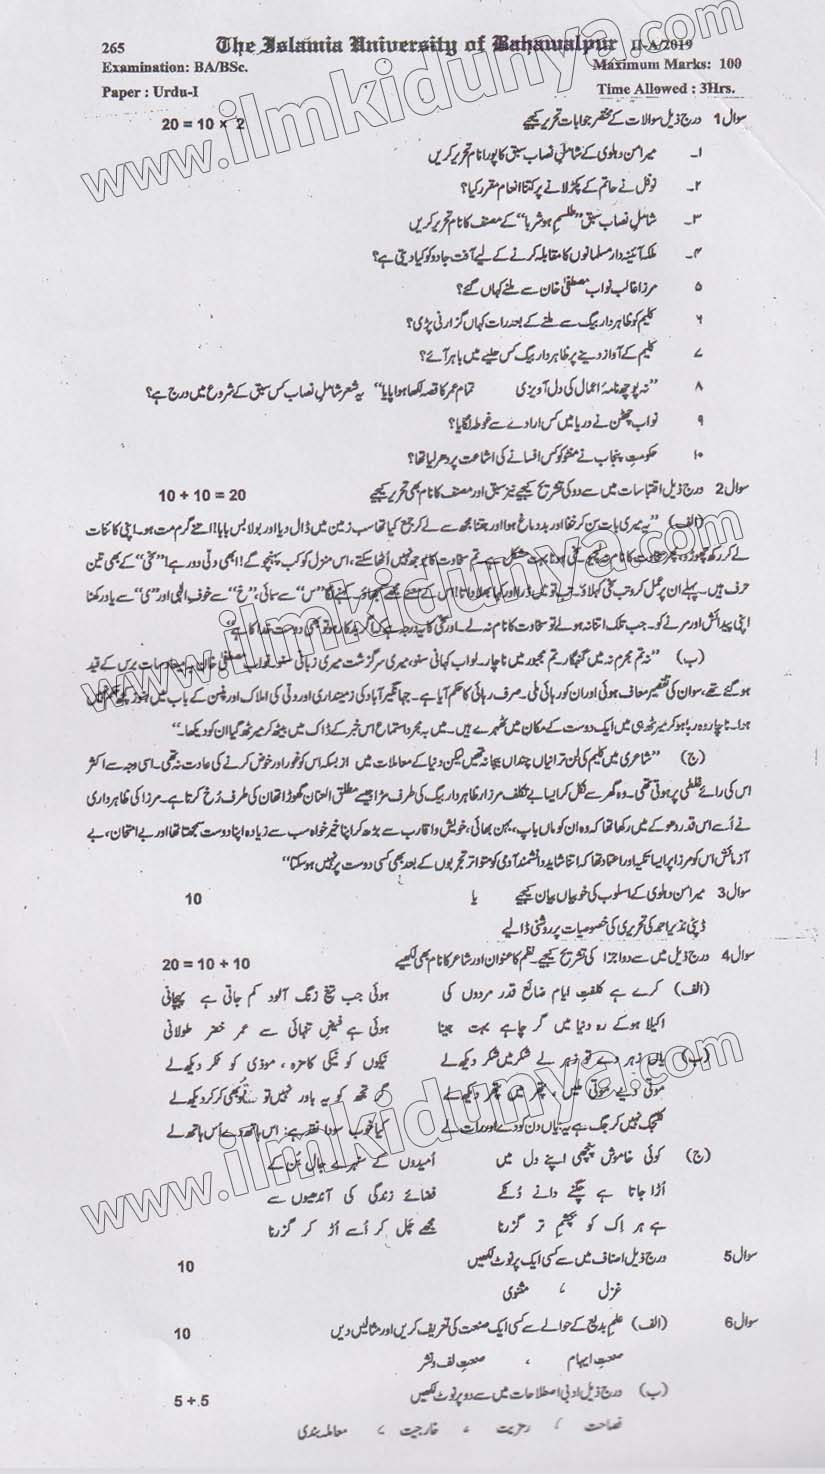 265 The Islamia University of Bahawalpur II-A/2019
Examination: BA/BSc. Maximum Marks: 100
Paper : Urdu-I Time Allowed : 3Hrs.
سوال 1 درج ذیل سوالات کے مختصر جوابات تحریر کیجیے 20 = 10 × 2
۱۔ میر امن دہلوی کے شامل نصاب سبق کا پورا نام تحریر کریں
۲۔ نوفل نے حاتم کے پکڑ لانے پر کتنا انعام مقرر کیا؟
۳۔ شامل نصاب سبق "طلسم ہوشربا" کے مصنف کا نام تحریر کریں
۴۔ ملکہ آئینہ دار مسلمانوں کا مقابلہ کرنے کے لیے آفت جادو کو کیا دیتی ہے؟
۵ مرزا غالب نواب مصطفیٰ خان سے ملنے کہاں گئے؟
۶ کلیم کو ظاہر دار بیگ سے ملنے کے بعد رات کہاں گزارنی پڑی؟
۷ کلیم کے آواز دینے پر ظاہر دار بیگ کس حلیے میں باہر آئے؟
۸ "نہ پوچھ نامۂ اعمال کی دل آویزی تمام عمر کا قصہ لکھا ہوا پایا" یہ شعر شامل نصاب کس سبق کے شروع میں درج ہے؟
۹ نواب چھٹن نے دریا میں کس ارادے سے غوطہ لگایا؟
۱۰ حکومت پنجاب نے منٹو کو کس افسانے کی اشاعت پر دھر لیا تھا؟
سوال 2 درج ذیل اقتباسات میں سے دو کی تشریح کیجیے نیز سبق اور مصنف کا نام بھی تحریر کیجیے 10 + 10 = 20
(الف) "یہ میری بات سن کر خفا اور بد دماغ ہوا اور جتنا مجھ سے لے کر جمع کیا تھا سب زمین میں ڈال دیا اور بولا بس بابا! اتنے گرم مت ہو۔ اپنی کائنات
لے کر رکھ چھوڑو، پھر سخاوت کا نام نہ لیجو۔ سخی ہونا بہت مشکل ہے۔ تم سخاوت کا بوجھ نہیں اُٹھا سکتے، اس منزل کو کب پہنچو گے! ابھی دلی دور ہے! "سخی" کے بھی تین
حرف ہیں۔ پہلے ان پر عمل کرو تب سخی کہلاؤ۔ تب تو میں ڈرا اور کہا بھلا داتا! اس کے معنے مجھے سمجھاؤ۔ کہنے لگا "س" سے سمائی، "خ" سے خوف الٰہی اور "ی" سے یاد رکھنا
اپنی پیدائش اور مرنے کو۔ جب تلک اتنا نہ ہولے تو سخاوت کا نام نہ لے۔ اور سخی کا یہ درجہ ہے کہ اگر بدکار ہو تو بھی دوست خدا کا ہے"
(ب) "نہ تم مجرم نہ میں گنہگار۔ تم مجبور میں ناچار۔ لو اب کہانی سنو، میری سرگزشت میری زبانی سنو۔ نواب مصطفیٰ خان بہ میعاد سات برس کے قید
ہو گئے تھے، سو ان کی تقصیر معاف ہوئی اور ان کو رہائی ملی۔ صرف رہائی کا حکم آیا ہے۔ جہانگیر آباد کی زمینداری اور دلی کی املاک اور پنسن کے باب میں ہنوز کچھ حکم نہیں
ہوا۔ ناچار وہ رہا ہو کر میرٹھ ہی میں ایک دوست کے مکان میں ٹھہرے ہیں۔ میں بہ مجرد استماع اس خبر کے ڈاک میں بیٹھ کر میرٹھ گیا ان کو دیکھا۔"
(ج) "شاعری میں کلیم کی لن ترانیاں چنداں بیجا نہ تھیں لیکن دنیا کے معاملات میں ازبسکہ اس کو غور اور خوض کرنے کی عادت نہ تھی۔ اسی وجہ سے اکثر
اس کی رائے غلطی پر ہوتی تھی۔ وہ گھر سے نکل کر ایسا بے تکلف مرزا ظاہر دار بیگ کی طرف مڑا جیسے مطلق العنان گھوڑا تھان کی طرف رُخ کرتا ہے۔ مرزا کی ظاہر داری
نے اُسے اس قدر دھوکے میں رکھا تھا کہ وہ ان کو ماں باپ، بہن بھائی، خویش و اقارب سے بڑھ کر اپنا خیر خواہ سب سے زیادہ اپنا دوست سمجھتا تھا اور بے امتحان، بے
آزمائش اس کو مرزا پر ایسا تکیہ اور اعتماد تھا کہ اتنا شاید دانشمند آدمی کو متواتر تجربوں کے بعد بھی کسی دوست پر نہیں ہو سکتا"
سوال 3 میر امن دہلوی کے اسلوب کی خوبیاں بیان کیجیے یا 10
ڈپٹی نذیر احمد کی تحریری کی خصوصیات پر روشنی ڈالیے
سوال 4 درج ذیل میں سے دو اجزا کی تشریح کیجیے۔ نظم کا عنوان اور شاعر کا نام بھی لکھیے 20 = 10 + 10
(الف) کرے ہے کلفت ایام ضائع قدر مردوں کی ہوئی جب تیغ زنگ آلود کم جاتی ہے پہچانی
اکیلا ہوکے رہ دنیا میں گر چاہے بہت جینا ہوئی ہے فیض تنہائی سے عمر خضر طولانی
(ب) یاں زہر دے تو زہر لے شکر میں شکر دیکھ لے نیکوں کو نیکی کا مزہ، موذی کو ٹکر دیکھ لے
موتی دیے موتی ملیں، پتھر میں پتھر دیکھ لے گر تجھ کو یہ باور نہیں تو تو بھی کر کر دیکھ لے
کلجگ نہیں کرجگ ہے یہ یاں دن کو دے اور رات لے کیا خوب سودا نقد ہے اس ہاتھ دے اُس ہاتھ لے
(ج) کوئی خاموش پنچھی اپنے دل میں اُمیدوں کے سنہرے جال بُن کے
اُڑا جاتا ہے چگنے دانے دُنکے فضائے زندگی کی آندھیوں سے
ہے ہر اِک کو بچشم تر گزرنا مجھے چل کر اُسے اُڑ کر گزرنا
سوال 5 درج ذیل اصناف میں سے کسی ایک پر نوٹ لکھیں 10
غزل ، مثنوی
سوال 6 (الف) علم بدیع کے حوالے سے کسی ایک صنعت کی تعریف کریں اور مثالیں دیں 10
صنعت ایہام ، صنعت لف و نشر
(ب) درج ذیل ادبی اصطلاحات میں سے دو پر نوٹ لکھیں 5 + 5
فصاحت ، رمزیت ، خارجیت ، معاملہ بندی
www.ilmkidunya.com
www.ilmkidunya.com
www.ilmkidunya.com